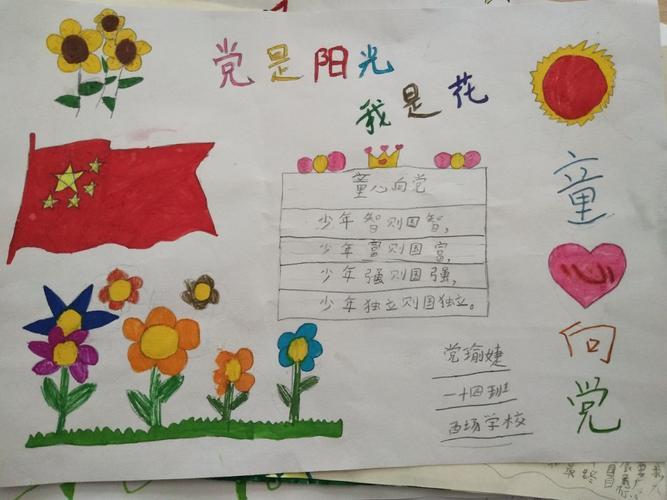 党是阳光
我是花
童心向党
少年智则国智，
少年富则国富，
少年强则国强，
少年独立则国独立。
童
心
向
党
党瑜婕
一十四班
西场学校